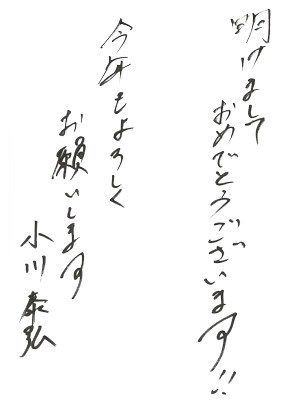 明けまして
おめでとうございます!!
今年もよろしく
お願いします
小川泰弘